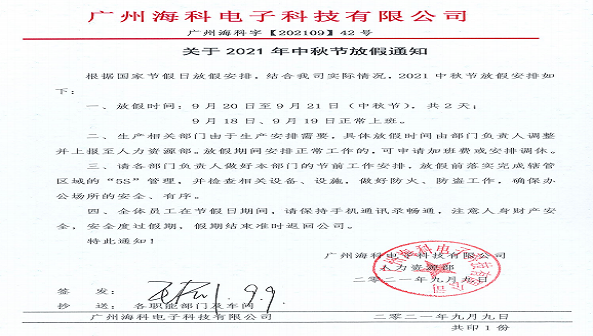 广州海科电子科技有限公司
广州海科字【202109】42 号
关于 2021 年中秋节放假通知
根据国家节假日放假安排，结合我司实际情况，2021 中秋节放假安排如
下：
一、放假时间：9 月 20 日至 9 月 21 日（中秋节），共 2 天；
9 月 18 日、9 月 19 日正常上班。
二、生产相关部门由于生产安排需要，具体放假时间由部门负责人调整
并上报至人力资源部。放假期间安排正常工作的，可申请加班费或安排调休。
三、请各部门负责人做好本部门的节前工作安排，放假前落实完成辖管
区域的“5S”管理，并检查相关设备、设施，做好防火、防盗工作，确保办
公场所的安全、有序。
四、全体员工在节假日期间，请保持手机通讯录畅通，注意人身财产安
全，安全度过假期，假期结束准时返回公司。
特此通知！
广州海科电子科技有限公司
人力资源部
二零二一年九月九日
签 发： 9.9.
抄 送：各职能部门及车间
广州海科电子科技有限公司 二零二一年九月九日
共印 1 份